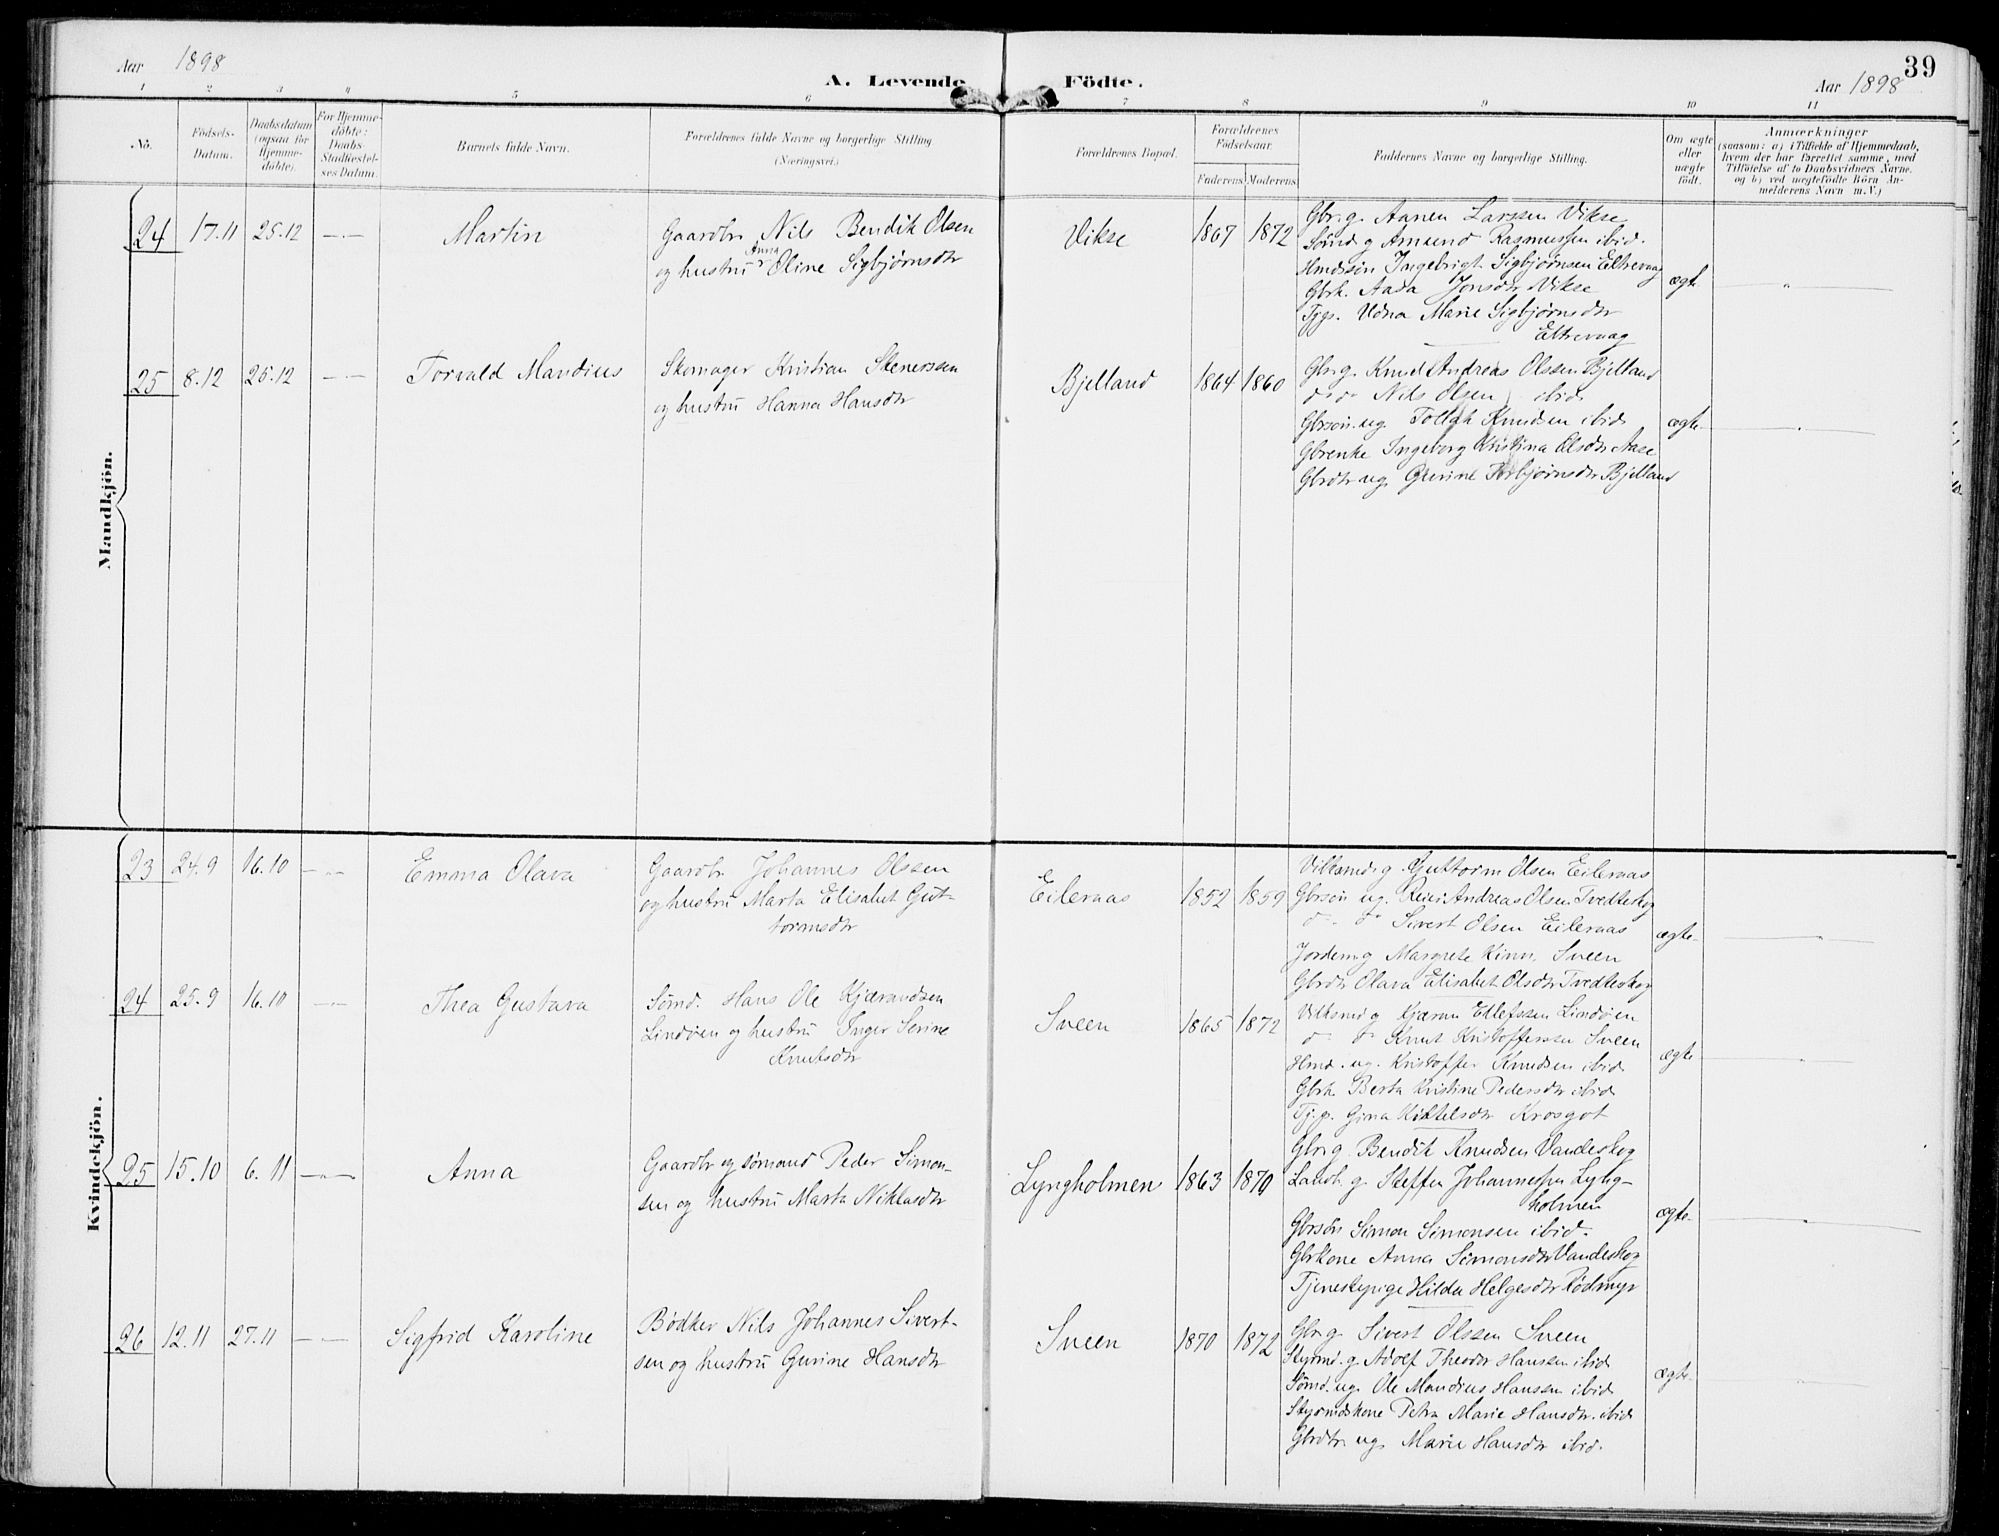 Aar 1898
A. Levende Födte.
39
Aar 1898
1 2 3 4 5 6 7 8 9 10 11
No.
Födsels-
Datum.
Daabsdatum
(ogsaa for
Hjemme-
döbte).
For Hjemme-
döbte:
Daabs-
Stadfæstel-
ses Datum.
Barnets fulde Navn.
Forældrenes fulde Navne og borgerlige Stilling
(Næringsvei.)
Forældrenes Bopæl.
Forældrenes
Födselsaar.
Faderens Moderens
Faddernes Navne og borgerlige Stilling.
Om ægte
eller
uægte
födt.
Anmærkninger
(saasom: a) i Tilfælde af Hjemmedaab,
hvem der har forrettet samme, med
Tilföielse af to Daabsvidners Navne.
og b) ved uægtefödte Börn An-
melderens Navn m. V.)
Mandkjön.
24 17.11 25.12 Martin
Gaardbr Nils Bendik Olsen
og hustru Anna Oline Sigbjørnsdtr
Vikse 1867 1872
Gbr. g. Aanen Larssen Vikse
Sømd g Amund Rasmussen ibid.
Hmdssøn Ingebrigt Sigbjørnsen Eltrevaag
Gbrk. Aasa Jonsdtr Vikse
Tjgp. Edna Marie Sigbjørnsdtr
Eltrevaag
ægte
25 8.12 26.12 Torvald Mandius
Skomager Kristian Stenerssen
og hustru Hanna Hansdtr
Bjelland 1864 1860
Gbr g. Knud Andreas Olssen Bjelland
do do Nils Olsen ibid
Gbrsøn ug. Tollak Knudsen ibid
Gbrenke Ingeborg Kristina Olsdtr Aase
Gbrdtr ug. Gurine Torbjørnsdtr Bjelland
ægte
Kvindekjön.
23 24.9 16.10 Emma Olava
Gaardbr Johannes Olssen
og hustru Marta Elisabet Gut-
tormsdtr
Eileraas 1852 1859
Vilksmd g. Guttorm Olsen Eileraas
Gbrsøn ug. Reier Andreas Olsen Tvedteskog
do do Sivert Olsen Eileraas
Jordem g Margrete Kinn Sveen
Gbrdtr Olava Elisabet Olsdtr Tvedteskog
ægte
24 25.9 16.10 Thea Gustava
Sømd. Hans Ole Kjærandsen
Lindøen og hustru Inger Serine
Knutsdtr
Sveen 1865 1872
Vilksmd g Kjæran Edlefssen Lindøien
do do Knut Kristofferssen Sveen
Hmd. ug. Kristoffer Knudsen ibid
Gbrk Berta Kristine Pedersdtr ibid
Tj.p. Gina Kittelsdtr Krosgot
ægte
25 15.10 6.11 Anna
Gaardbr og sømand Peder Simon-
sen og hustru Marta Niklasdtr
Lyngholmen 1863 1870
Gbr g. Bendik Knudsen Vandeskog
Landh. g. Steffen Johannessen Lyng-
holmen
Gbrsøn Simon Simonsen ibid.
Gbrkone Anna Simonsdtr Vandeskog
Tjenestepige Hilda Helgesdtr Rødmyr
ægte
26 12.11 27.11 Sigfrid Karoline
Bødker Nils Johannes Sivert-
sen og hustru Gurine Hansdtr
Sveen 1870 1872
Gbr g. Sivert Olssen Sveen
Styrmd. g. Adolf Theodor Hanssen ibid
Sømd. ug. Ole Mandius Hanssen ibid
Styrmdskone Petra Marie Hansdtr. ibid
Gbrdtr ug. Marie Hansdtr ibid.
ægte